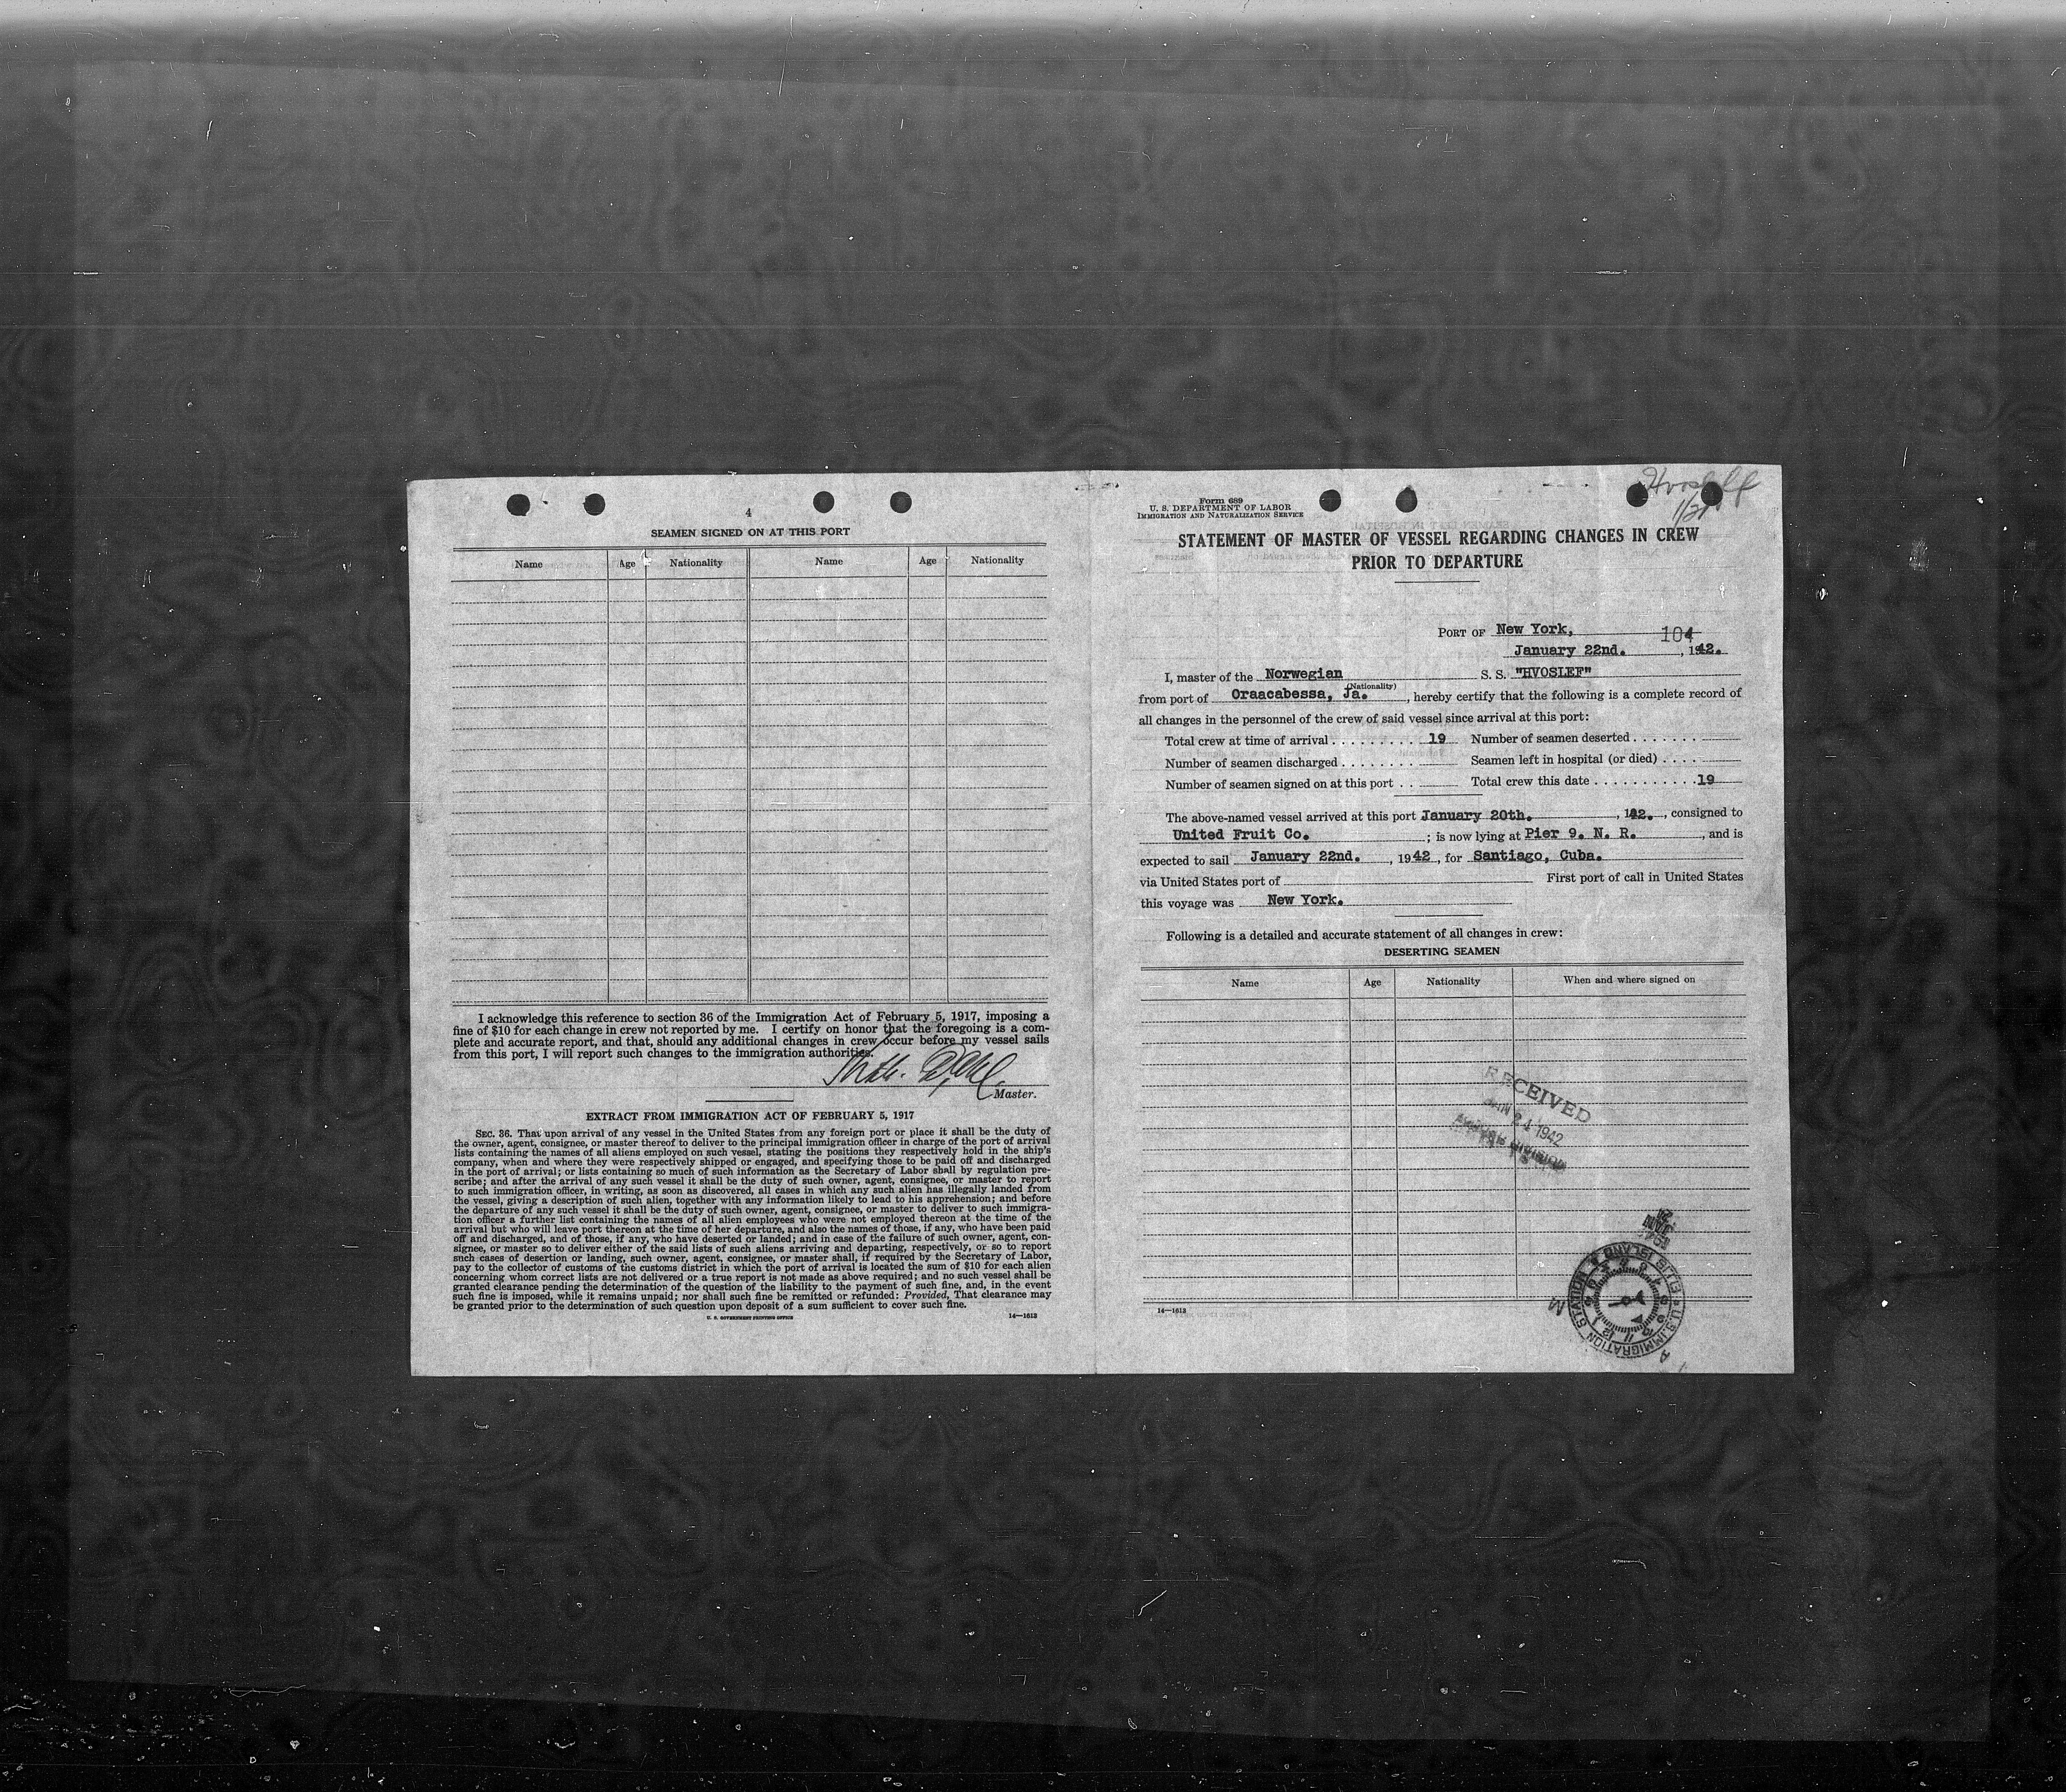 4
SEAMEN SIGNED ON AT THIS PORT
Name Age Nationality Name Age Nationality
I acknowledge this reference to section 36 of the Immigration Act of February 5, 1917, imposing a
fine of $10 for each change in crew not reported by me. I certify on honor that the foregoing is a com-
plete and accurate report, and that, should any additional changes in crew occur before my vessel sails
from this port, I will report such changes to the immigration authorities.
Master.
EXTRACT FROM IMMIGRATION ACT OF FEBRUARY 5, 1917
SEC. 36. That upon arrival of any vessel in the United States from any foreign port or place it shall be the duty of
the owner, agent, consignee, or master thereof to deliver to the principal immigration officer in charge of the port of arrival
lists containing the names of all aliens employed on such vessel, stating the positions they respectively hold in the ship's
company, when and where they were respectively shipped or engaged, and specifying those to be paid off and discharged
in the port of arrival; or lists containing so much of such information as the Secretary of Labor shall by regulation pre-
scribe; and after the arrival of any such vessel it shall be the duty of such owner, agent, consignee, or master to report
to such immigration officer, in writing, as soon as discovered, all cases in which any such alien has illegally landed from
the vessel, giving a description of such alien, together with any information likely to lead to his apprehension; and before
the departure of any such vessel it shall be the duty of such owner, agent, consignee, or master to deliver to such immigra-
tion officer a further list containing the names of all alien employees who were not employed thereon at the time of the
arrival but who will leave port thereon at the time of her departure, and also the names of those, if any, who have been paid
off and discharged, and of those, if any, who have deserted or landed; and in case of the failure of such owner, agent, con-
signee, or master so to deliver either of the said lists of such aliens arriving and departing, respectively, or so to report
such cases of desertion or landing, such owner, agent, consignee, or master shall, if required by the Secretary of Labor,
pay to the collector of customs of the customs district in which the port of arrival is located the sum of $10 for each alien
concerning whom correct lists are not delivered or a true report is not made as above required; and no such vessel shall be
granted clearance pending the determination of the question of the liability to the payment of such fine, and, in the event
such fine is imposed, while it remains unpaid; nor shall such fine be remitted or refunded: Provided, That clearance may
be granted prior to the determination of such question upon deposit of a sum sufficient to cover such fine.
U. S. GOVERNMENT PRINTING OFFICE 14—1613
Hvoslef
Form 689
U. S. DEPARTMENT OF LABOR
IMMIGRATION AND NATURALIZATION SERVICE
STATEMENT OF MASTER OF VESSEL REGARDING CHANGES IN CREW
PRIOR TO DEPARTURE
PORT OF New York, 104
January 22nd. , 1942.
I, master of the Norwegian S. S. "HVOSLEF"
(Nationality)
from port of Oraacabessa, Ja. , hereby certify that the following is a complete record of
all changes in the personnel of the crew of said vessel since arrival at this port:
Total crew at time of arrival . . . . . . . . . 19 Number of seamen deserted . . . . . . .
Number of seamen discharged . . . . . . . . Seamen left in hospital (or died) . . . .
Number of seamen signed on at this port . . Total crew this date . . . . . . . . . . . 19
The above-named vessel arrived at this port January 20th. , 142. , consigned to
United Fruit Co. ; is now lying at Pier 9. N. R. , and is
expected to sail January 22nd. , 1942 , for Santiago, Cuba.
via United States port of First port of call in United States
this voyage was New York.
Following is a detailed and accurate statement of all changes in crew:
DESERTING SEAMEN
Name Age Nationality When and where signed on
RECEIVED
JAN 24 1942
DIVISION
U.S. IMMIGRATION STATION ELLIS ISLAND
14—1613